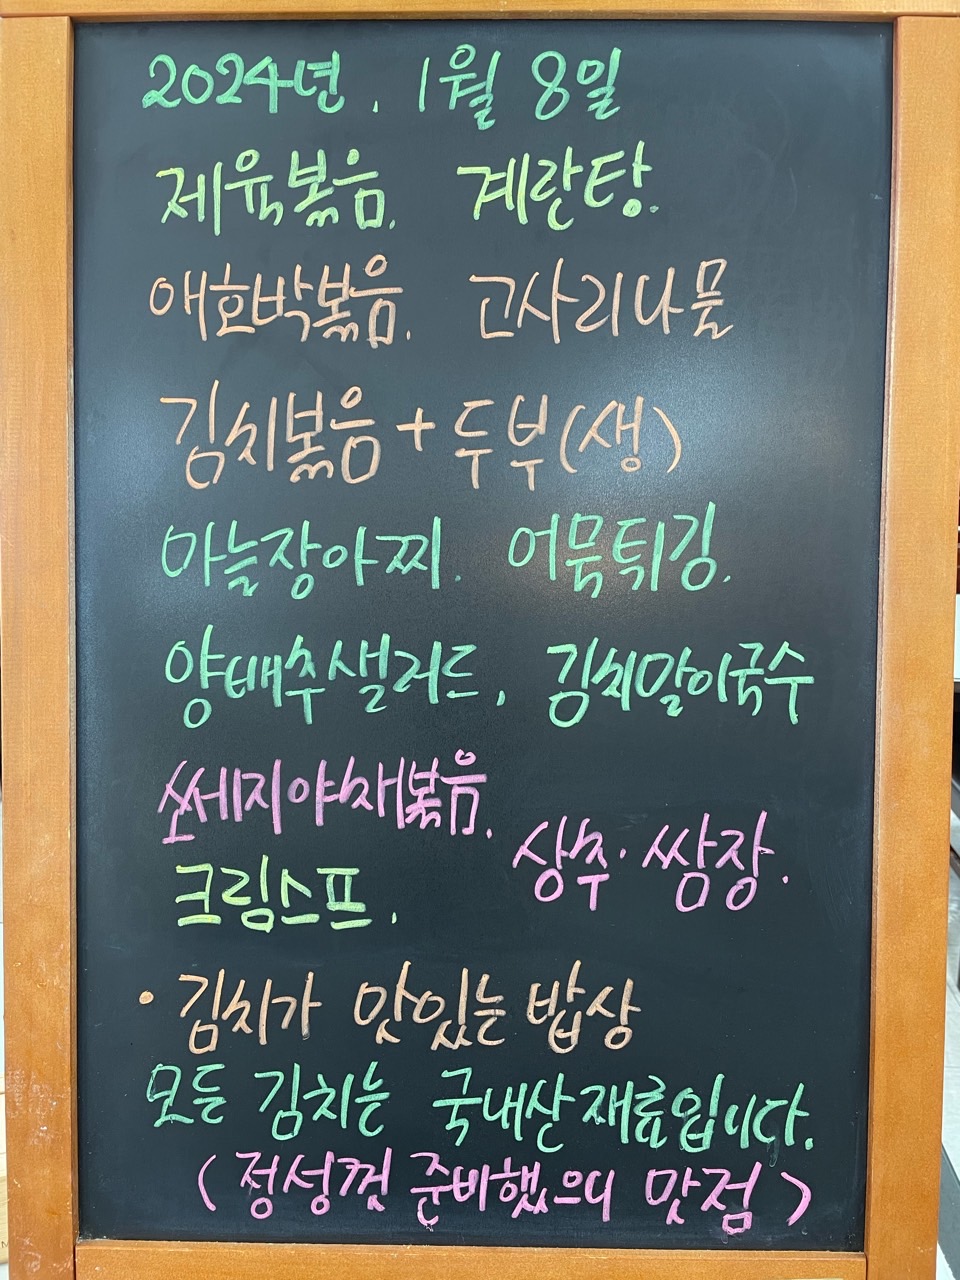 2024년. 1월 8일
제육볶음. 계란탕.
애호박볶음. 고사리나물
김치볶음+두부(생)
마늘장아찌. 어묵튀김.
양배추샐러드, 김치말이국수
쏘세지야채볶음.
상추·쌈장.
크림스프.
·김치가 맛있는 밥상
모든 김치는 국내산재료입니다.
(정성껏 준비했으니 맛점)